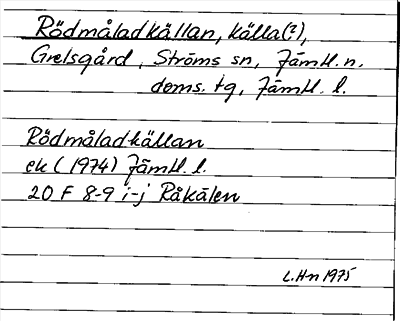 Rödmåladkällan, källa(?),
Grelsgård, Ströms sn, Jämtl. n.
doms. tg, Jämtl. l.
Rödmåladkällan
ek (1974) Jämtl. l.
20 F 8-9 i-j Råkälen
L.H-n 1975